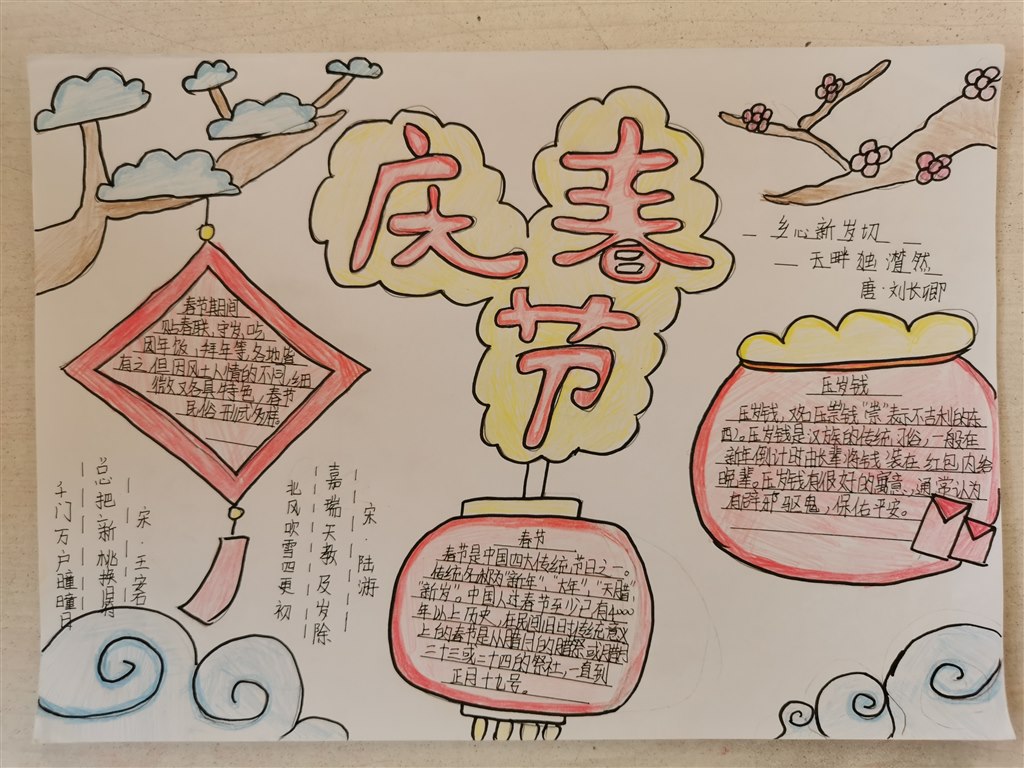 庆春
节
乡心新岁切
天畔独潸然
唐·刘长卿
春节期间
贴春联、守岁、吃
团年饭、拜年等,各地皆
有之,但因风土人情的不同,细
微又各具特色,春节
民俗形式多样。
压岁钱
压岁钱,又名压祟钱"祟"表示不吉利的东
西)。压岁钱是汉族的传统习俗,一般在
新年倒计时由长辈将钱装在红包内给
晚辈。压岁钱有很好的寓意,通常认为
有辟邪驱鬼,保佑平安。
千门万户曈曈日
总把新桃换旧符
宋·王安石
北风吹雪四更初
嘉瑞天教及岁除
宋·陆游
春节
春节是中国四大传统节日之一。
传统名称为"新年"、"大年"、"天腊"
"新岁"。中国人过春节至少已有4000
年以上历史,在民间旧日传统意义
上的春节是从腊月的腊祭或腊月
二十三或二十四的祭灶,一直到
正月十九号。